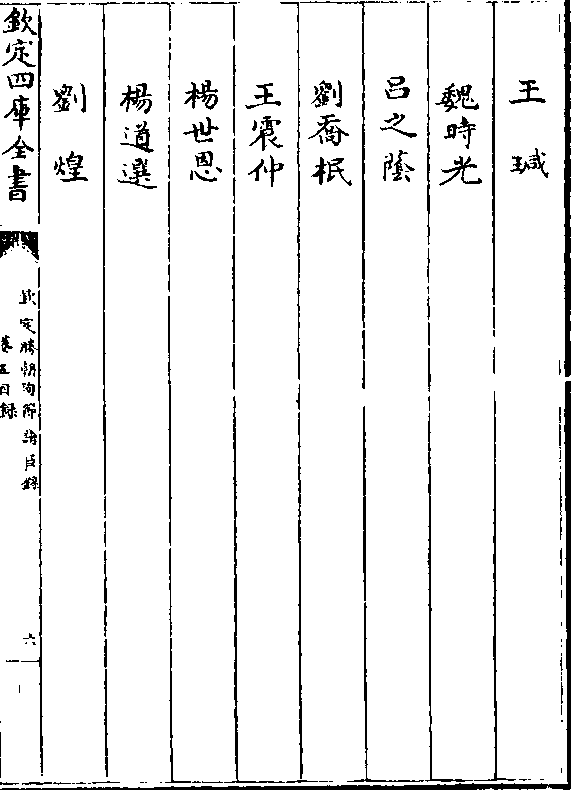 王　瑊
魏時光
呂之蔭
劉喬㭽
王震仲
楊世恩
楊道選
劉　煌
欽定四庫全書
欽定勝朝殉節諸臣錄
卷五目錄
六